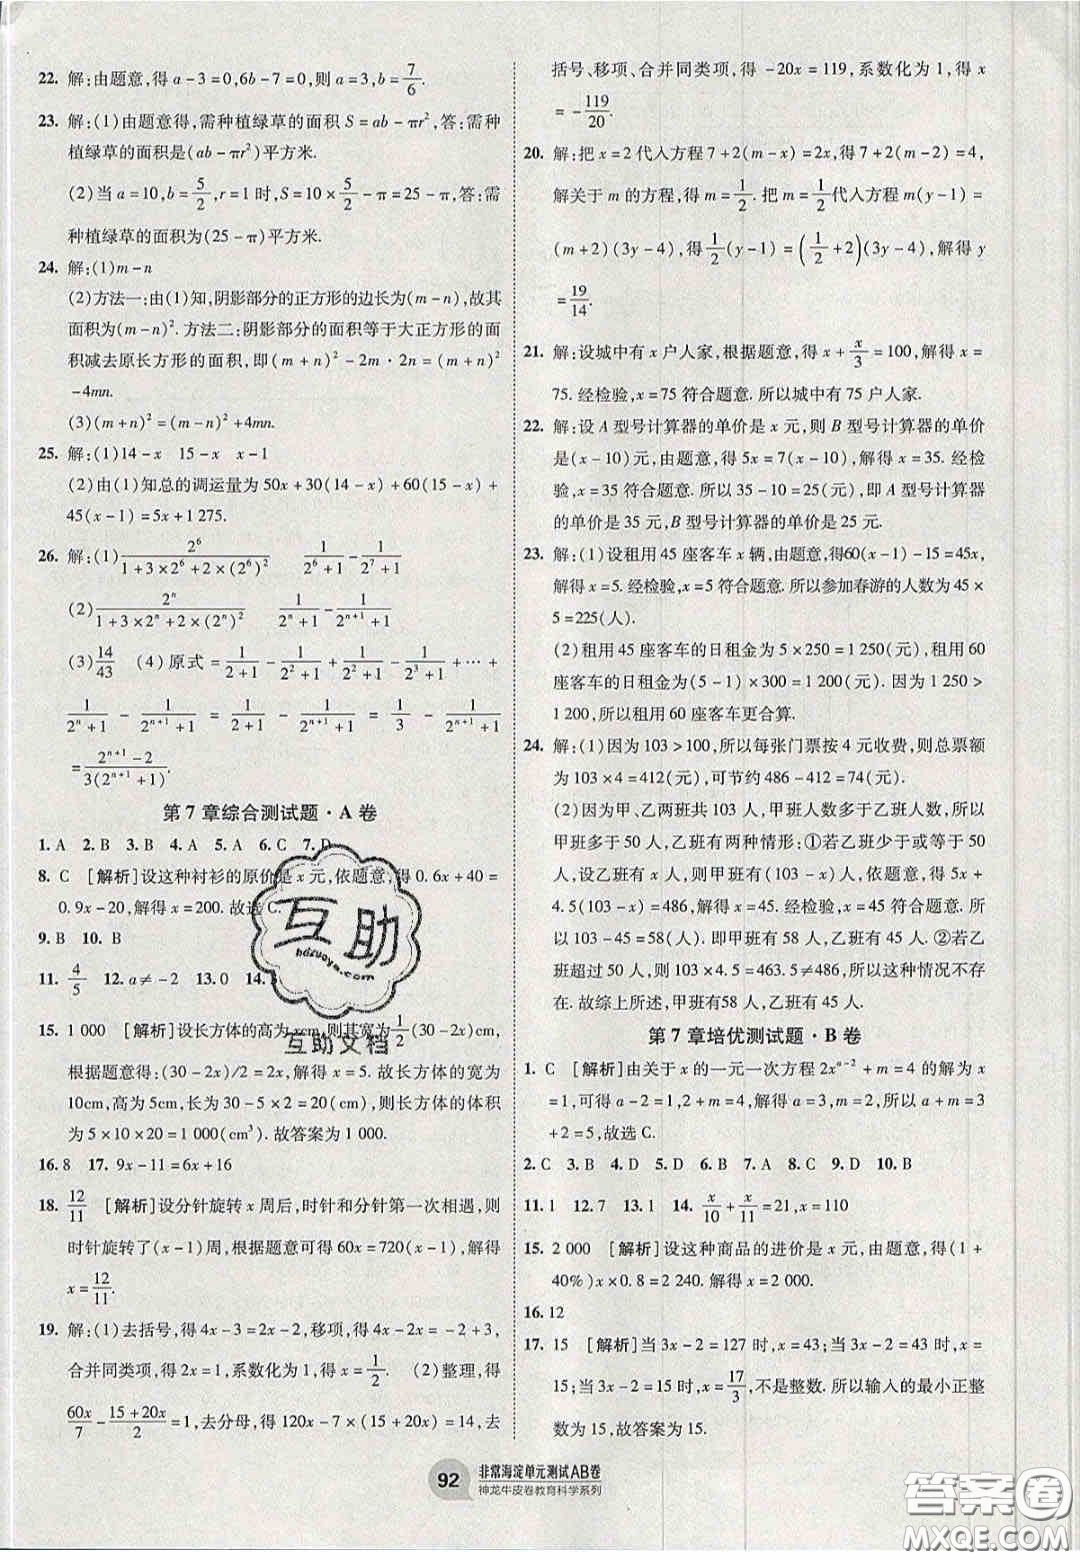 22. 解:由题意,得 a-3=0,6b-7=0,则 a=3,b=7/6.
23. 解:(1)由题意得,需种植绿草的面积 S=ab-πr²,答:需种
植绿草的面积是(ab-πr²)平方米.
(2)当 a=10,b=5/2,r=1 时,S=10×5/2-π=25-π,答:需
种植绿草的面积为(25-π)平方米.
24. 解:(1)m-n
(2)方法一:由(1)知,阴影部分的正方形的边长为(m-n),故其
面积为(m-n)². 方法二:阴影部分的面积等于大正方形的面
积减去原长方形的面积,即(m+n)²-2m·2n=(m+n)²
-4mn.
(3)(m+n)²=(m-n)²+4mn.
25. 解:(1)14-x 15-x x-1
(2)由(1)知总的调运量为 50x+30(14-x)+60(15-x)+
45(x-1)=5x+1 275.
26. 解:(1)2⁶/(1+3×2⁶+2×(2⁶)²) 1/(2⁶+1)-1/(2⁷+1)
(2)2ⁿ/(1+3×2ⁿ+2×(2ⁿ)²) 1/(2ⁿ+1)-1/(2ⁿ⁺¹+1)
(3)14/43 (4)原式=1/(2+1)-1/(2²+1)+1/(2²+1)-1/(2³+1)+…+
1/(2ⁿ+1)-1/(2ⁿ⁺¹+1)=1/(2+1)-1/(2ⁿ⁺¹+1)=1/3-1/(2ⁿ⁺¹+1)
=(2ⁿ⁺¹-2)/(3(2ⁿ⁺¹+1)).
第 7 章综合测试题·A 卷
1. A 2. B 3. B 4. A 5. A 6. C 7. D
8. C [解析]设这种衬衫的原价是 x 元,依题意,得 0.6x+40=
0.9x-20,解得 x=200. 故选 C.
9. B 10. B
11. 4/5 12. a≠-2 13. 0 14.
15. 1 000 [解析]设长方体的高为 xcm,则其宽为1/2(30-2x)cm,
根据题意得:(30-2x)/2=2x,解得 x=5. 故长方体的宽为
10cm,高为 5cm,长为 20cm. 则长方体的体积
为 5×10×20=1 000(cm³). 故答案为 1 000.
16. 8 17. 9x-11=6x+16
18. 12/11 [解析]设分针旋转 x 周后,时针和分针第一次相遇,则
时针旋转了(x-1)周,根据题意可得 60x=720(x-1),解得
x=12/11.
19. 解:(1)去括号,得 4x-3=2x-2,移项,得 4x-2x=-2+3,
合并同类项,得 2x=1,系数化为 1,得 x=1/2. (2)整理,得
60x/7-(15+20x)/2=1,去分母,得 120x-7×(15+20x)=14,去
括号、移项、合并同类项,得 -20x=119,系数化为 1,得 x
=-119/20.
20. 解:把 x=2 代入方程 7+2(m-x)=2x,得 7+2(m-2)=4,
解关于 m 的方程,得 m=1/2. 把 m=1/2代入方程 m(y-1)=
(m+2)(3y-4),得1/2(y-1)=(1/2+2)(3y-4),解得 y
=19/14.
21. 解:设城中有 x 户人家,根据题意,得 x+x/3=100,解得 x=
75. 经检验,x=75 符合题意. 所以城中有 75 户人家.
22. 解:设 A 型号计算器的单价是 x 元,则 B 型号计算器的单价
是(x-10)元,由题意,得 5x=7(x-10),解得 x=35. 经检
验,x=35 符合题意. 所以 35-10=25(元),即 A 型号计算器
的单价是 35 元,B 型号计算器的单价是 25 元.
23. 解:(1)设租用 45 座客车 x 辆,由题意,得60(x-1)-15=45x,
解得 x=5. 经检验,x=5 符合题意. 所以参加春游的人数为 45×
5=225(人).
(2)租用 45 座客车的日租金为 5×250=1 250(元),租用 60
座客车的日租金为(5-1)×300=1 200(元). 因为 1 250>
1 200,所以租用 60 座客车更合算.
24. 解:(1)因为 103>100,所以每张门票按 4 元收费,则总票额
为 103×4=412(元),可节约 486-412=74(元).
(2)因为甲、乙两班共 103 人,甲班人数多于乙班人数,所以甲
班多于 50 人,乙班有两种情形:①若乙班少于或等于 50
人,设乙班有 x 人,则甲班有(103-x)人,依题意,得 5x+
4.5(103-x)=486,解得 x=45. 经检验,x=45 符合题意. 所
以 103-45=58(人). 即甲班有58 人,乙班有 45 人. ②若乙
班多于 50 人,则 103×4.5=463.5≠486,所以这种情况不存
在. 故综上所述,甲班有58 人,乙班有 45 人.
第 7 章培优测试题·B 卷
1. C [解析]由关于 x 的一元一次方程 2xᵃ⁻²+m=4 的解为 x
=1,可得 a-2=1,2+m=4,解得 a=3,m=2,所以 a+m=3
+2=5,故选 C.
2. C 3. B 4. D 5. D 6. B 7. A 8. C 9. D 10. B
11. 1 12. 7 13. 1 14. x/10+x/11=21,x=110
15. 2 000 [解析]设这种商品的进价是 x 元,由题意,得(1+
40%)x×0.8=2 240. 解得 x=2 000.
16. 12
17. 15 [解析]当 3x-2=127 时,x=43;当 3x-2=43 时,x=
15;当 3x-2=15 时,x=17/3,不是整数. 所以输入的最小正整
数为 15,故答案为 15.
92 非常海淀单元测试AB卷
神龙牛皮卷教育科学系列
互助
hdzuoye.com
互助文档
答案卷
MXQE.COM